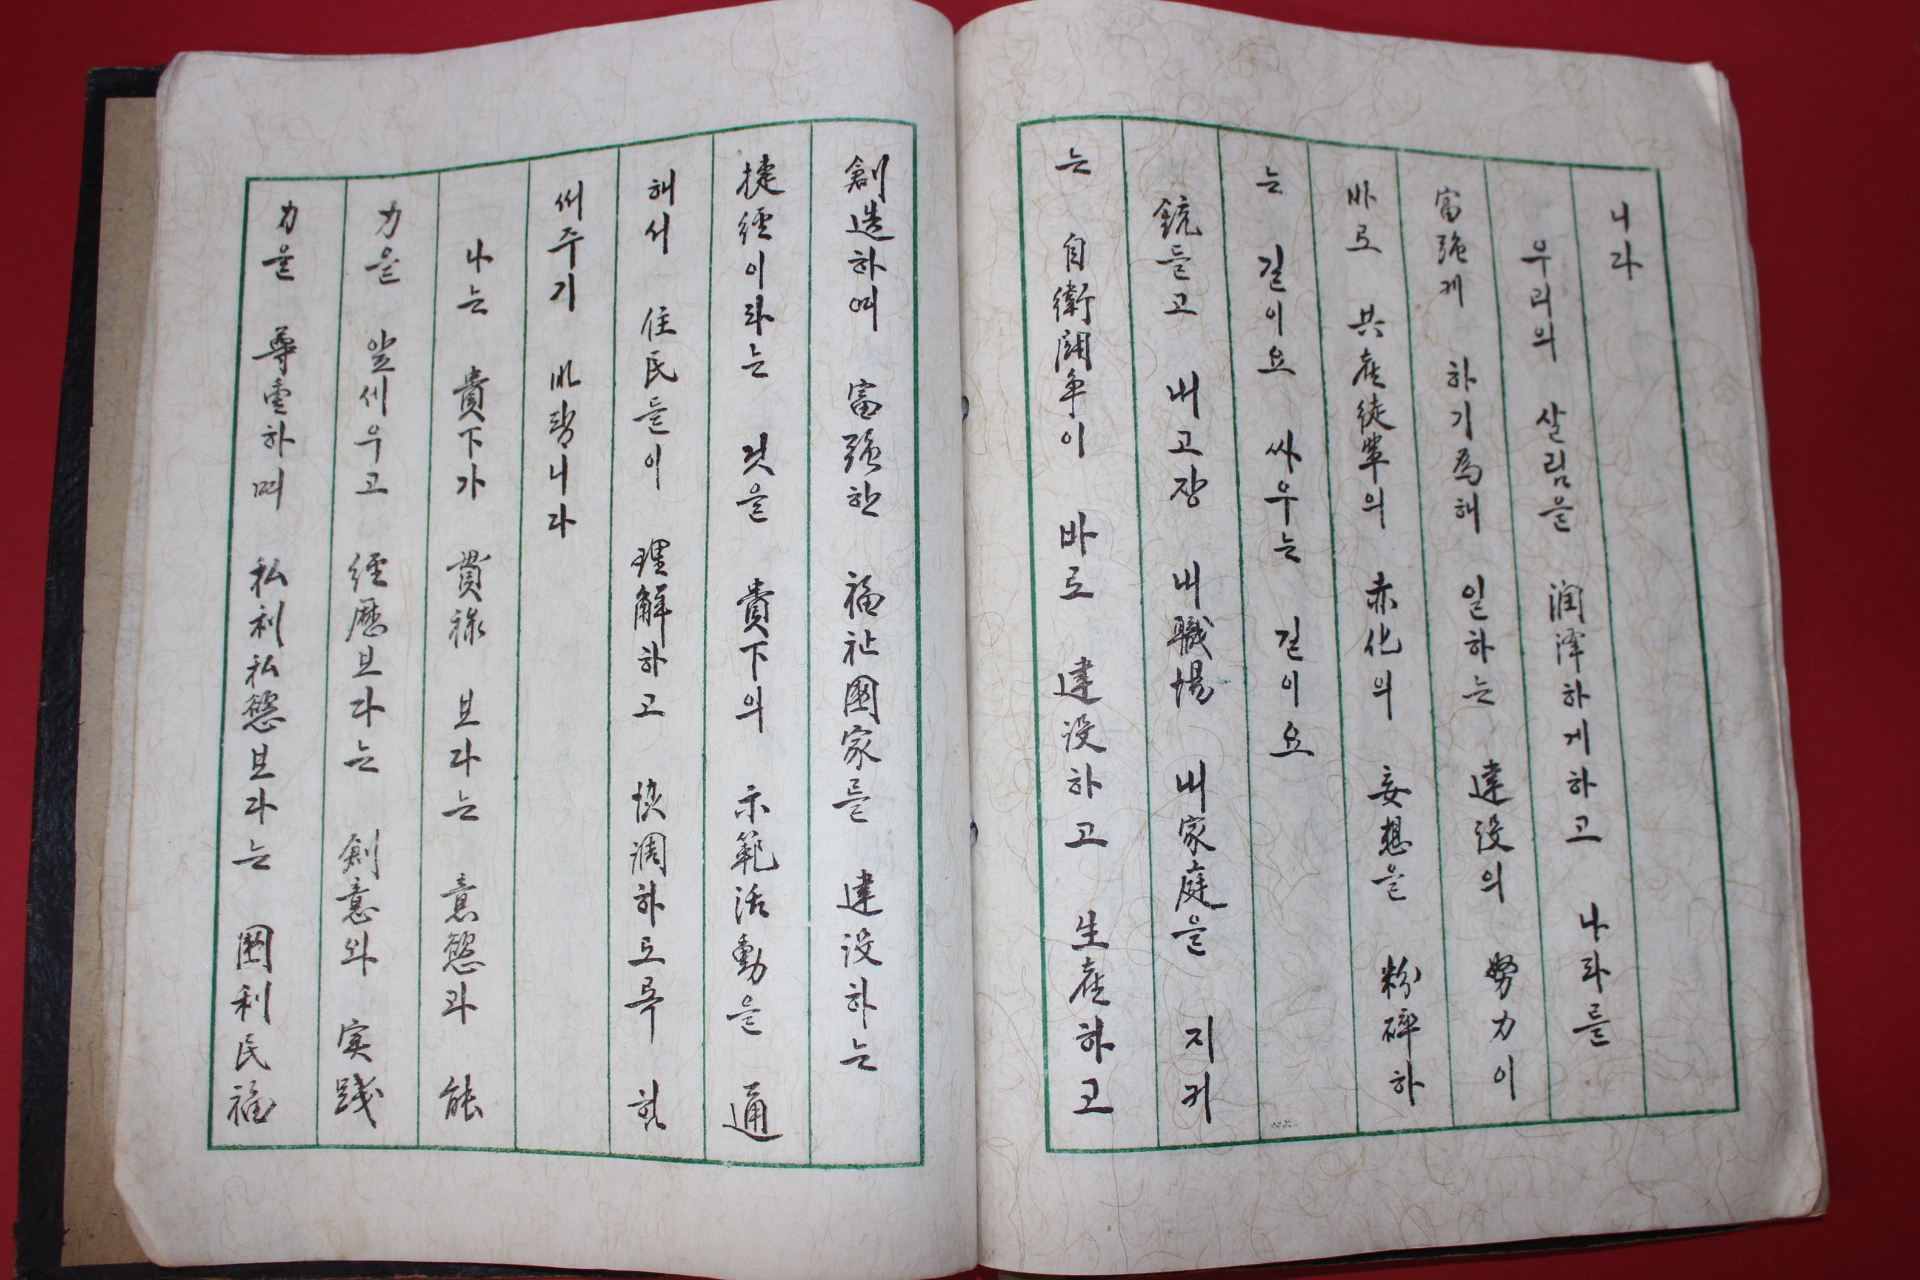 니다
우리의 살림을 润泽하게하고 나라를
富强케 하기爲해 일하는 建設의 努力이
바로 共産徒輩의 赤化의 妄想을 粉碎하
는 길이요 싸우는 길이요
銃들고 내고장 내職場 내家庭을 지키
는 自衛鬪争이 바로 建設하고 生産하고
創造하며 富强한 福祉國家를 建設하는
捷徑이라는 것을 貴下의 示範活動을 通
해서 住民들이 理解하고 協調하도록 힘
써주기 바랍니다
나는 貴下가 貫祿 보다는 意慾과 能
力을 앞세우고 經歷보다는 創意와 実践
力을 尊重하며 私利私慾보다는 國利民福